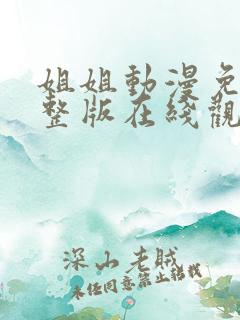 姐姐動漫免
整版在綫觀
深山老賊
未經同意禁止轉載